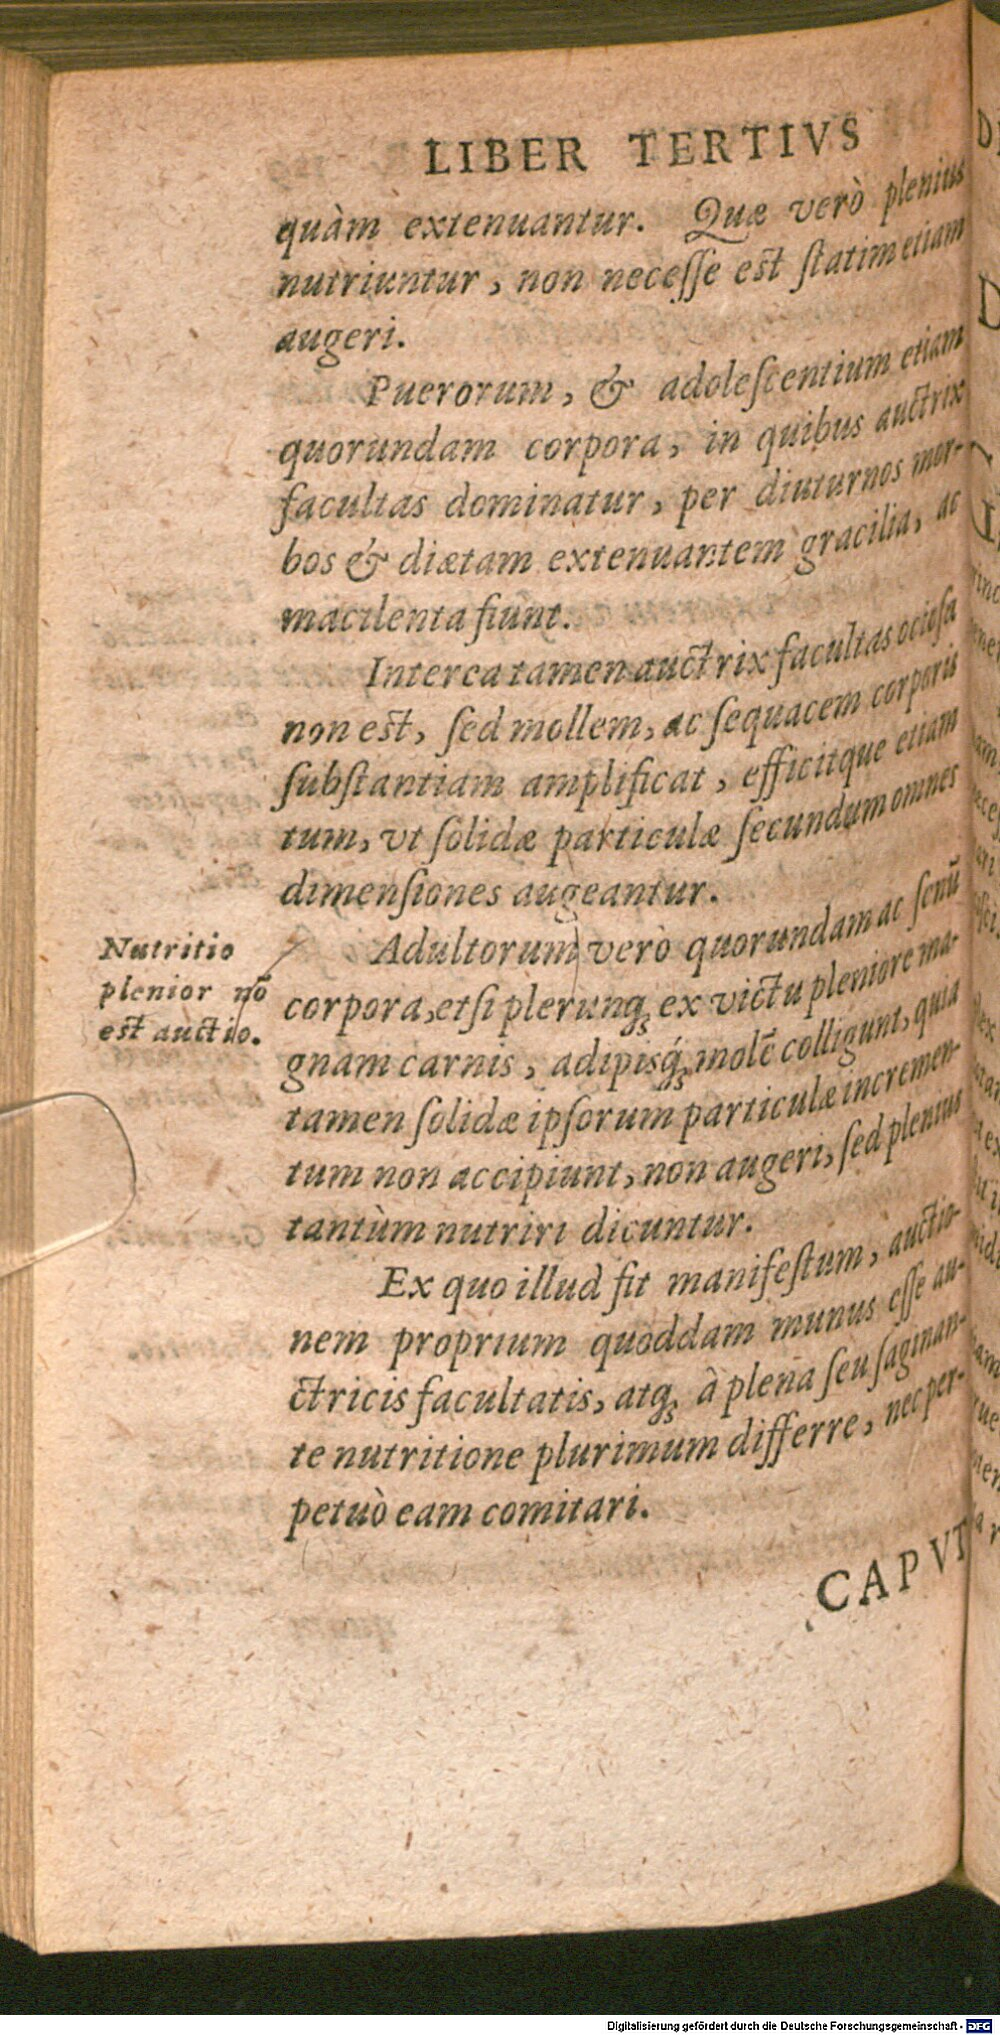 LIBER TERTIVS
quàm extenuantur. Quæ verò plenius
nutriuntur, non necesse est statim etiam
augeri.
Puerorum, & adolescentium etiam
quorundam corpora, in quibus auctrix
facultas dominatur, per diuturnos mor-
bos & diætam extenuantem gracilia, ac
macilenta fiunt.
Interea tamen auctrix facultas ociosa
non est, sed mollem, ac sequacem corporis
substantiam amplificat, efficitque etiam
tum, vt solidæ particulæ secundum omnes
dimensiones augeantur.
Nutritio
plenior nō
est auctio.
Adultorum verò quorundam ac senū
corpora, etsi plerunq; ex victu pleniore ma-
gnam carnis, adipisq́; molē colligunt, quia
tamen solidæ ipsorum particulæ incremen-
tum non accipiunt, non augeri, sed plenius
tantùm nutriri dicuntur.
Ex quo illud fit manifestum, auctio-
nem proprium quoddam munus esse au-
ctricis facultatis, atq; à plena seu saginan-
te nutritione plurimum differre, nec per-
petuò eam comitari.
CAPVT
Digitalisierung gefördert durch die Deutsche Forschungsgemeinschaft - DFG